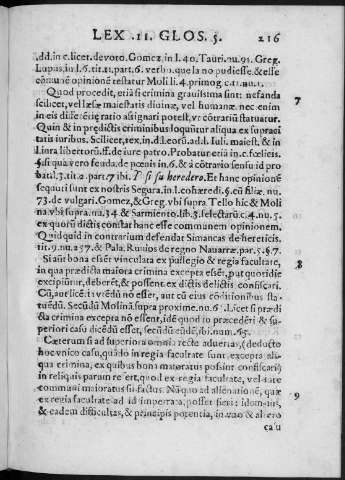 LEX .11. GLOS. 5. 216
dd. in c. licet. de voto. Gomez, in l. 40. Tauri. nu. 91. Greg.
Lupus, in l. 6. tit. 11. part. 6. verbo. que la no pudiesse. & esse
cõmunẽ opinionẽ testatur Moli li. 4. primog c. 11. nu. 1.
Quod procedit, etiã si crimina gravissima sint: nefanda
scilicet, vel læsæ maiestatis divinæ, vel humanæ nec enim
in eis differẽtiæ ratio assignari potest, vt cõtrariũ statuatur.
Quin & in prædictis criminibus loquitur aliqua ex supraci
tatis iuribus. Scilicet, tex. in. d. l. eorũ. ad. l. Iuli. maiest. & in
l. nra libertorũ. ff. de iure patro. Probatur etiã in c. fœlicis.
§. si quã vero feuda. de pœnis in. 6. & à cõtrario sensu id pro
bat. l. 3. tit. 2. part. 7 ibi. Y si su heredero. Et hanc opinionẽ
sequuti sunt ex nostris Segura. in l. cohæredi. §. cũ filiæ. nu.
73. de vulgari. Gomez, & Greg. vbi supra Tello hic & Moli
na vbi supra. nu. 34 & Sarmiento. lib. 3. selectarũ c. 4. nu. 5.
ex quorũ dictis constat hanc esse communem opinionem.
Quidquid in contrarium defendat Simancas de hereticis.
tit. 9. nu. 257. & Pala. Ruuios de regno Navarræ. par. 5. §. 7.
Si aũt bona essẽt vinculata ex privilegio & regia facultate,
in qua prædicta maiora crimina excepta essẽt, put quotidie
excipiũtur, deberẽt, & possent. ex dictis delictis confiscari.
Cũ, aut licẽtia vẽdũ nõ esset, aut cũ eius cõditionibus sta-
tuẽdũ. Secũdũ Molinã supra proxime. nu. 6. Licet si præd
cta crimina excepta nõ essent, idẽ quod in præcedẽti & su
periori casu dicẽdũ esset, secũdũ eũdẽ, ibi. num. 45.
Cæterum si ad superiora omnia recte advertas, (deducto
hoc vnico casu, quãdo in regia facultate sunt excepta ali-
qua crimina, ex quibus bona maioratus possint confiscari)
in reliquis parum refert, quod ex regia facultate, vel iure
communi maioratus sit factus. Nã quo ad alienationẽ, quæ
ex regia facultate ad id imperrata, posset fieri: idem ius,
& eadem difficultas, & principis potentia, in vno & altero
casu
7
8
9